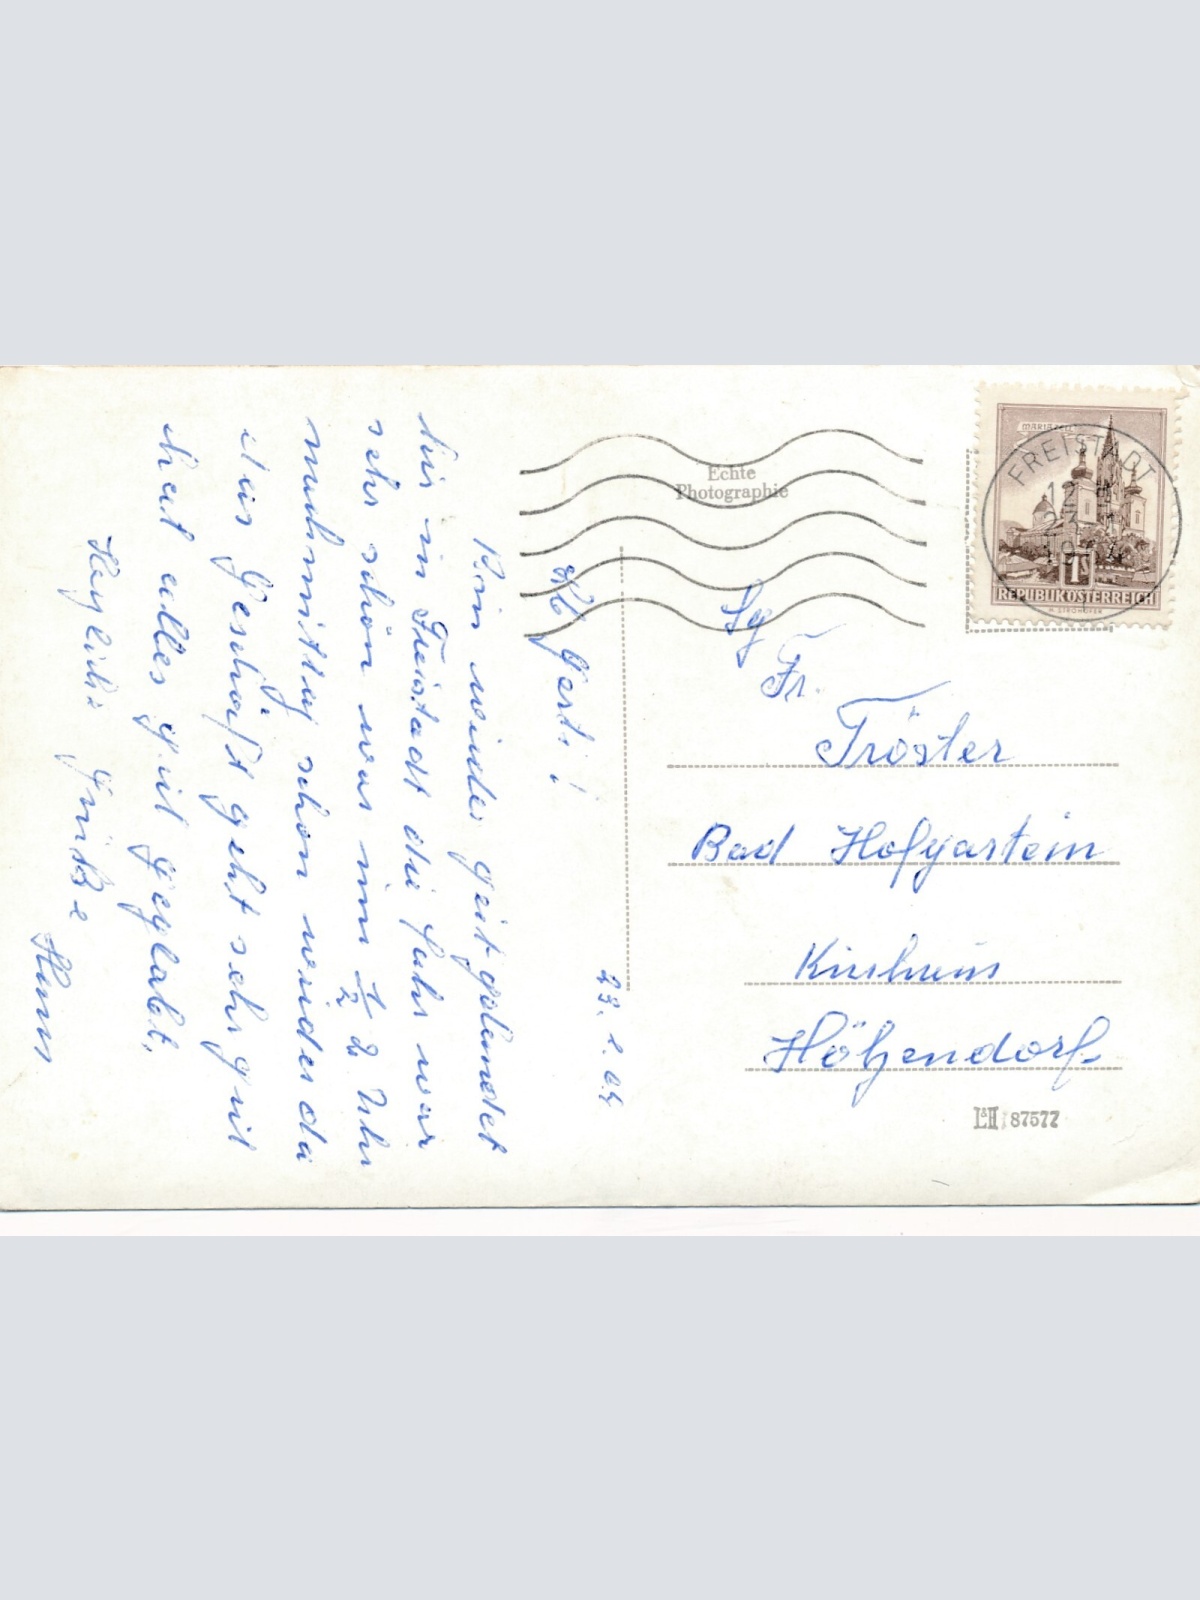 Echte
Photographie
MARIAZELL
FREISTADT
12
1S
REPUBLIK ÖSTERREICH
23. 1. 64
Lb. Gerti!
Bin wieder gut gelandet
hier in Freistadt die Fahrt war
sehr schön war um ½ 2 Uhr
nachmittag schon wieder da
das Geschäft geht sehr gut
hat alles gut geklappt.
Herzliche Grüße
Hans
Sg
Fr.
Tröster
Bad Hofgastein
Kurhaus
Hötzendorf
L&H 87577